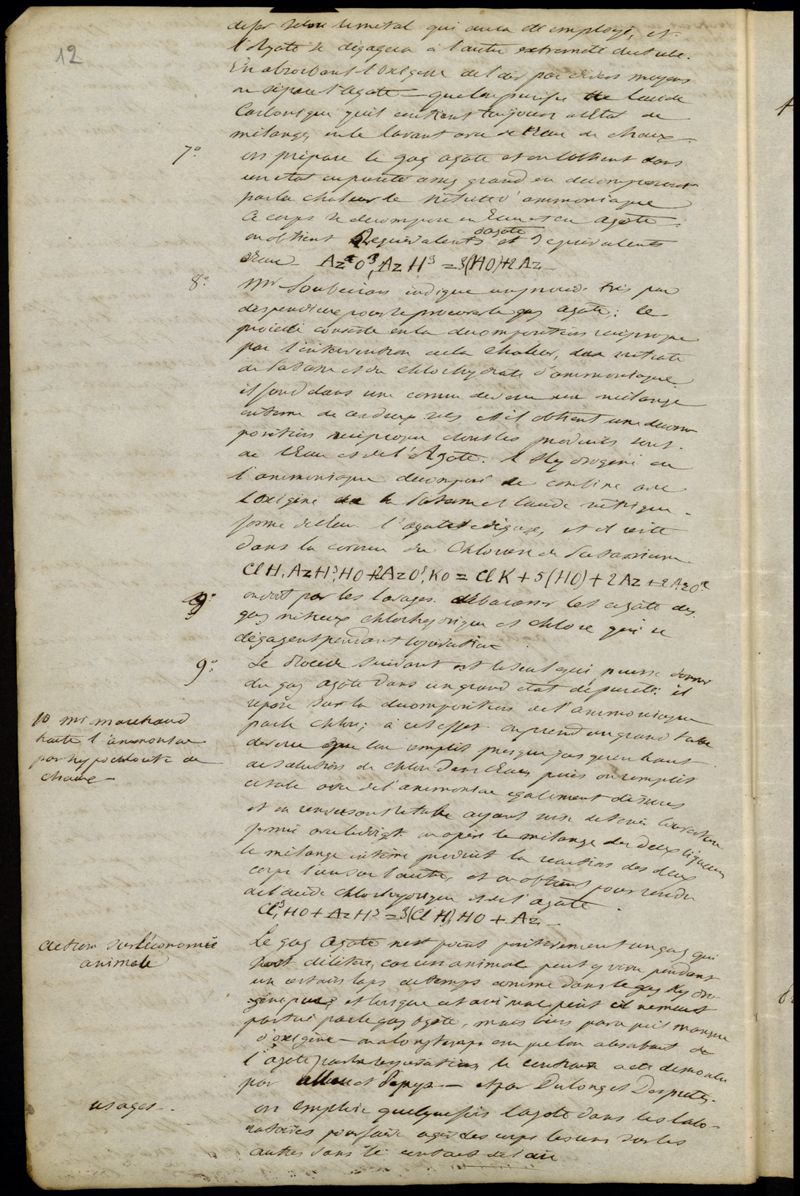 12
de fer selon le métal qui aura été employé, et
l'azote se dégagera à l'autre extrémité du tube.
En absorbant l'oxigène de l'air par divers moyens
on sépare l'azote — que l'on purifie de l'acide
Carbonique qu'il contient toujours à l'état de
mélange, en le lavant avec de l'Eau de chaux
7° on prépare le gaz azote et on l'obtient dans
un état de pureté assez grand en décomposant
par la chaleur le nitrite d'ammoniaque
Ce corps se décompose en Eau et en azote
on obtient 2 equivalents d'azote et 3 equivalents
d'Eau Az O³, Az H³ = 3(HO) + 2 Az
8° Mr Soubeiran indique un procédé très peu
dispendieux pour se procurer le gaz azote; ce
procédé consiste en la décomposition réciproque
par l'intervention de la chaleur, du nitrate
de Potasse et du chlorhydrate d'ammoniaque
il fond dans une cornue de verre un mélange
intime de ces deux sels et il obtient une décom
position réciproque dont les produits sont
de l'Eau et de l'Azote. l'Hydrogène de
l'ammoniaque décomposé se combine avec
l'oxigène de la Potasse et l'acide nitrique
forme de l'eau l'azote se dégage, et il reste
dans la cornue du Chlorure de Potassium
Cl H, Az H³, HO + 2 Az O⁵, KO = Cl K + 5(HO) + 2 Az + 2 Az O²
on doit par les lavages débarrasser les azote des
gaz nitreux chlorhydrique et chlore qui se
dégagent pendant l'opération
9° Le Procédé suivant est le seul qui puisse donner
du gaz azote dans un grand état de pureté; il
repose sur la décomposition de l'ammoniaque
par le chlore; à cet effet on prend un grand tube
de verre que l'on emplit presque jusqu'en haut
de solution de chlore dans l'Eau, puis on remplit
ce tube avec de l'ammoniac également dissous
et en renversant le tube ayant soin de tenir l'ouverture
fermée avec le doigt on opère le mélange des deux liqueurs
le mélange intime produit la réaction des deux
corps l'un sur l'autre, et on obtient pour résidu
de l'acide chlorhydrique et de l'azote
Cl³, HO + Az H³ = 3(Cl H), HO + Az
10 Mr Marchand
traite l'ammoniac
par hypochlorite de
chaux —
action sur l'économie
animale
Le gaz azote n'est point positivement un gaz qui
soit délétère, car un animal peut y vivre pendant
un certain laps de temps comme dans le gaz Hydro
gène pur; et lorsque cet animal périt il ne meurt
pas tué par le gaz azote, mais bien parce qu'il manque
d'oxigène — on a longtemps cru que l'on absorbait de
l'azote par la respiration, le contraire a été démontré
par Allen et Pepys — et par Dulong et Despretz.
usages.
on emploie quelquefois l'azote dans les labo-
ratoires pour faire agir des corps les uns sur les
autres sans le contact de l'air